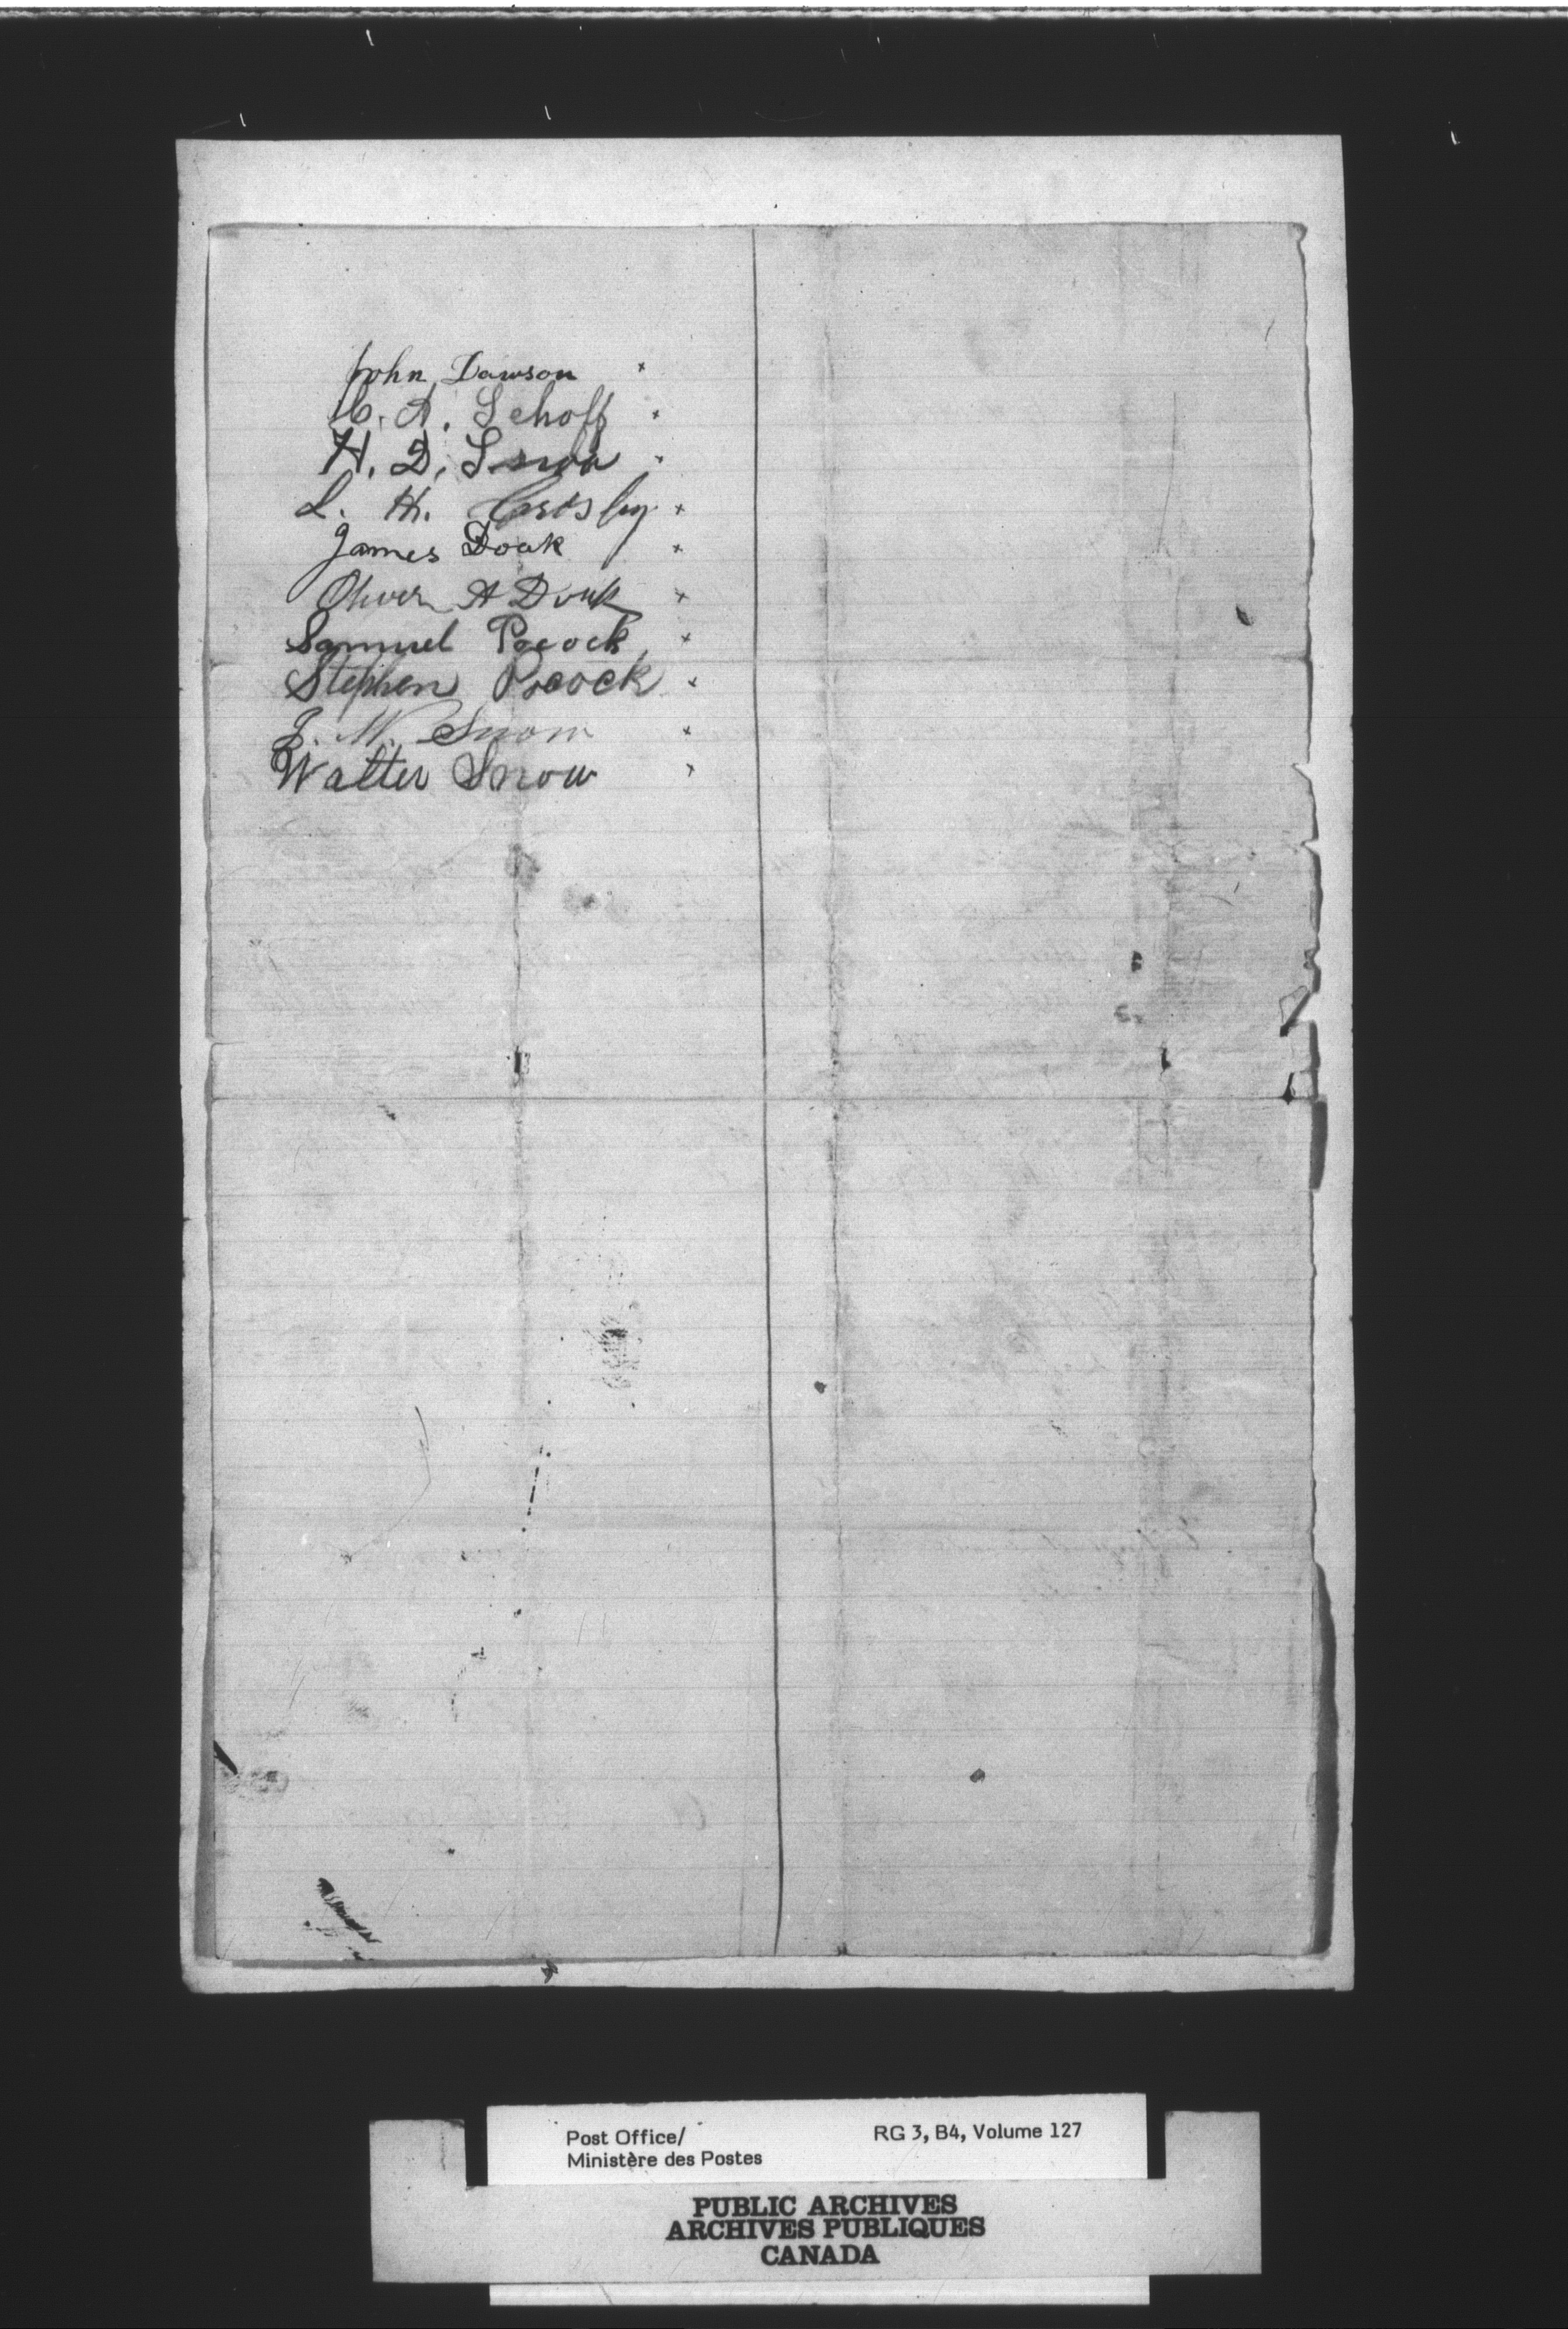 John Dawson ×
C. A. Schoff ×
H. D. Snow ×
L. H. Crosby ×
James Doak ×
Oliver A Doak ×
Samuel Pocock ×
Stephen Pocock ×
J. N. Snow ×
Walter Snow ×
Post Office/ RG 3, B4, Volume 127
Ministère des Postes
PUBLIC ARCHIVES
ARCHIVES PUBLIQUES
CANADA